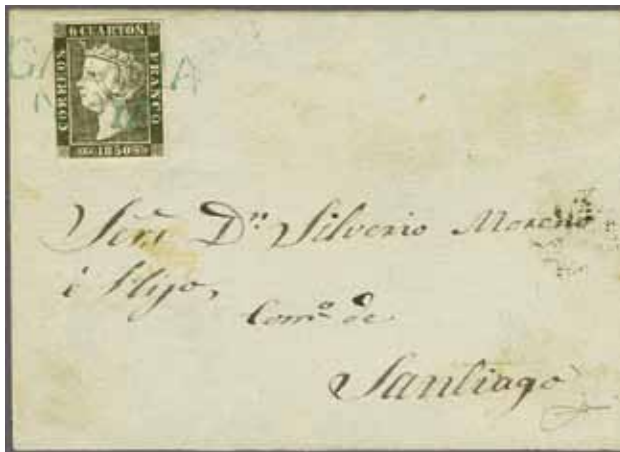 6 CUARTOS
CORREOS
FRANCO
1850
Señr Dn Silverio Moreno
é Hijo,
Comº de
Santiago